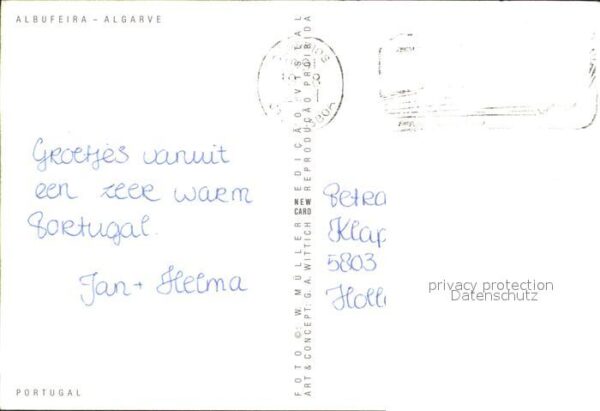 ALBUFEIRA – ALGARVE
Groetjes vanuit
een zeer warm
Portugal.
Jan + Helma
PORTUGAL
FOTO ©: W. MÜLLER EDIÇÃO VISEAL
ART & CONCEPT: G. A. WITTICH REPRODUÇÃO PROIBIDA
NEW
CARD
Petra
Klap
5803
Holl
privacy protection
Datenschutz